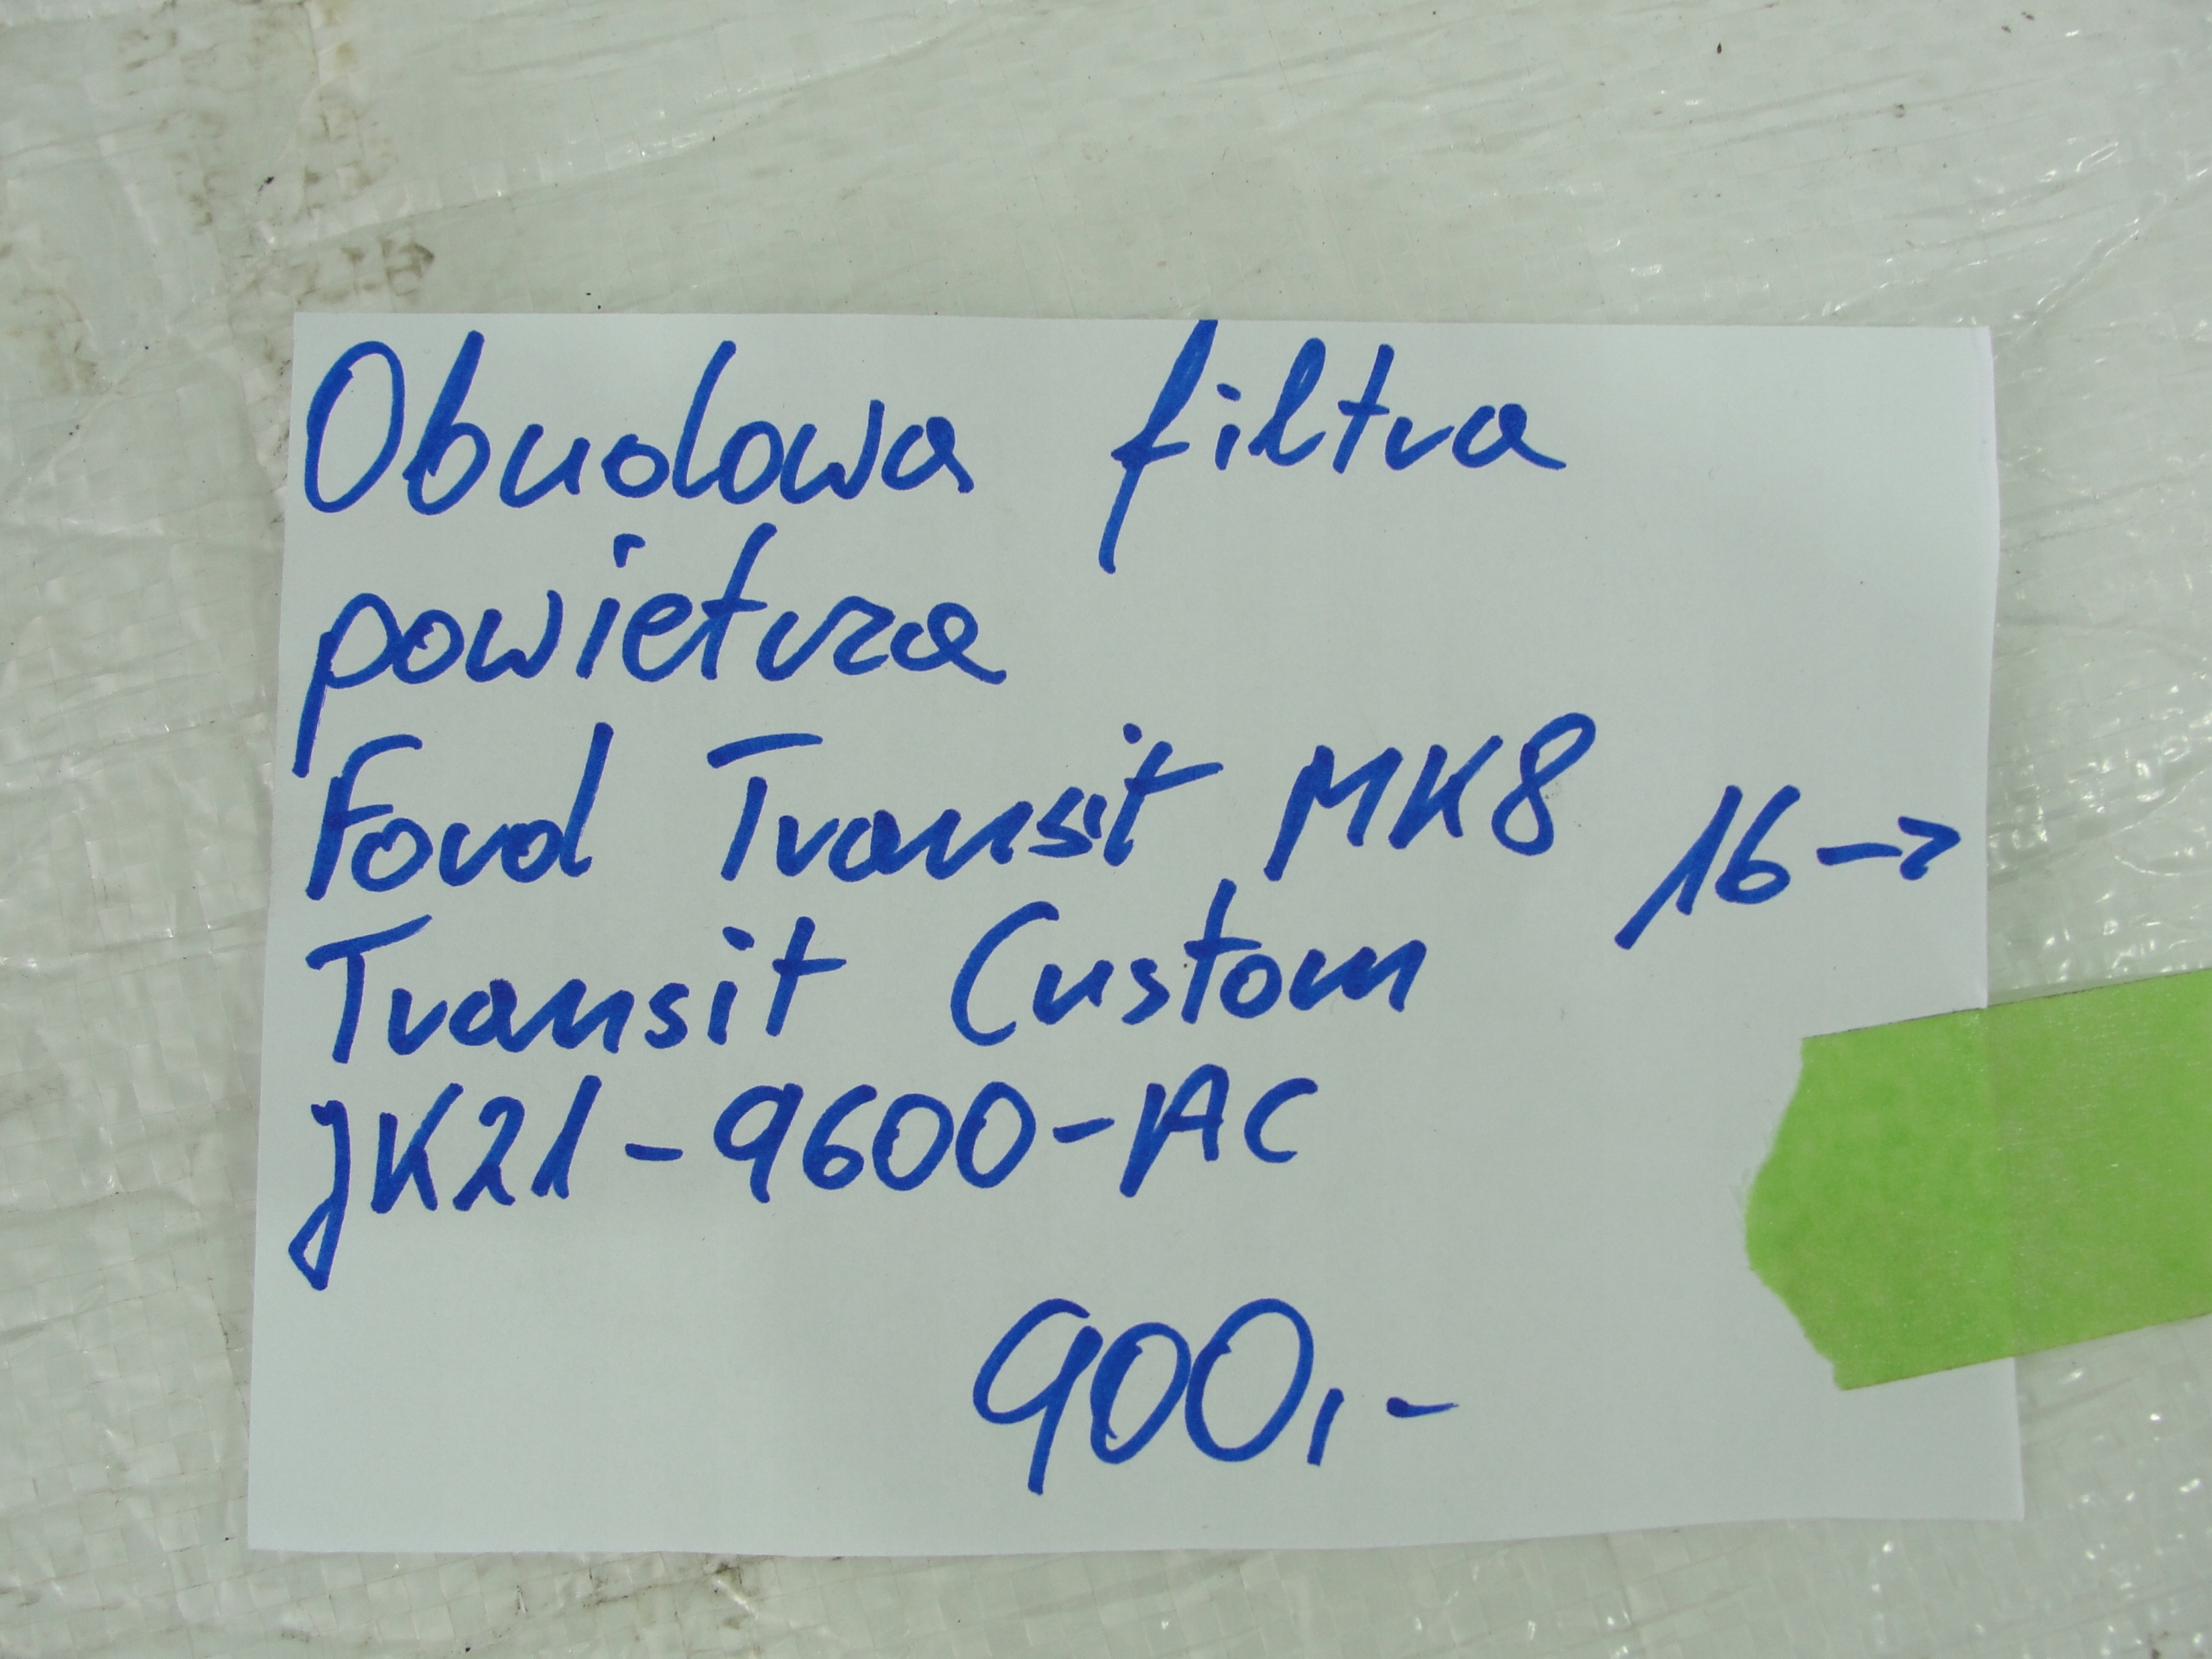 Obudowa filtra
powietrza
Ford Transit MK8 16->
Transit Custom
JK21-9600-AC
900,-